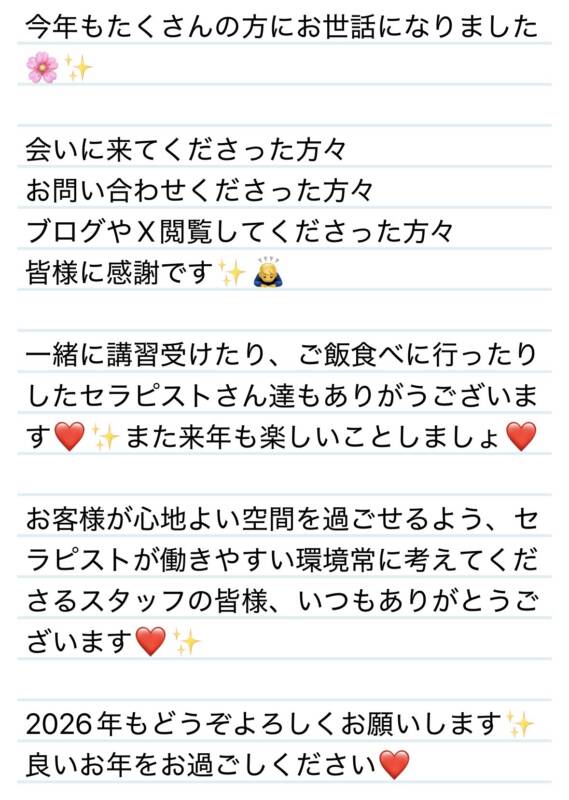 今年もたくさんの方にお世話になりました
🌸✨
会いに来てくださった方々
お問い合わせくださった方々
ブログやX閲覧してくださった方々
皆様に感謝です✨🙇
一緒に講習受けたり、ご飯食べに行ったり
したセラピストさん達もありがうございま
す❤️✨また来年も楽しいことしましょ❤️
お客様が心地よい空間を過ごせるよう、セ
ラピストが働きやすい環境常に考えてくだ
さるスタッフの皆様、いつもありがとうご
ざいます❤️✨
2026年もどうぞよろしくお願いします✨
良いお年をお過ごしください❤️